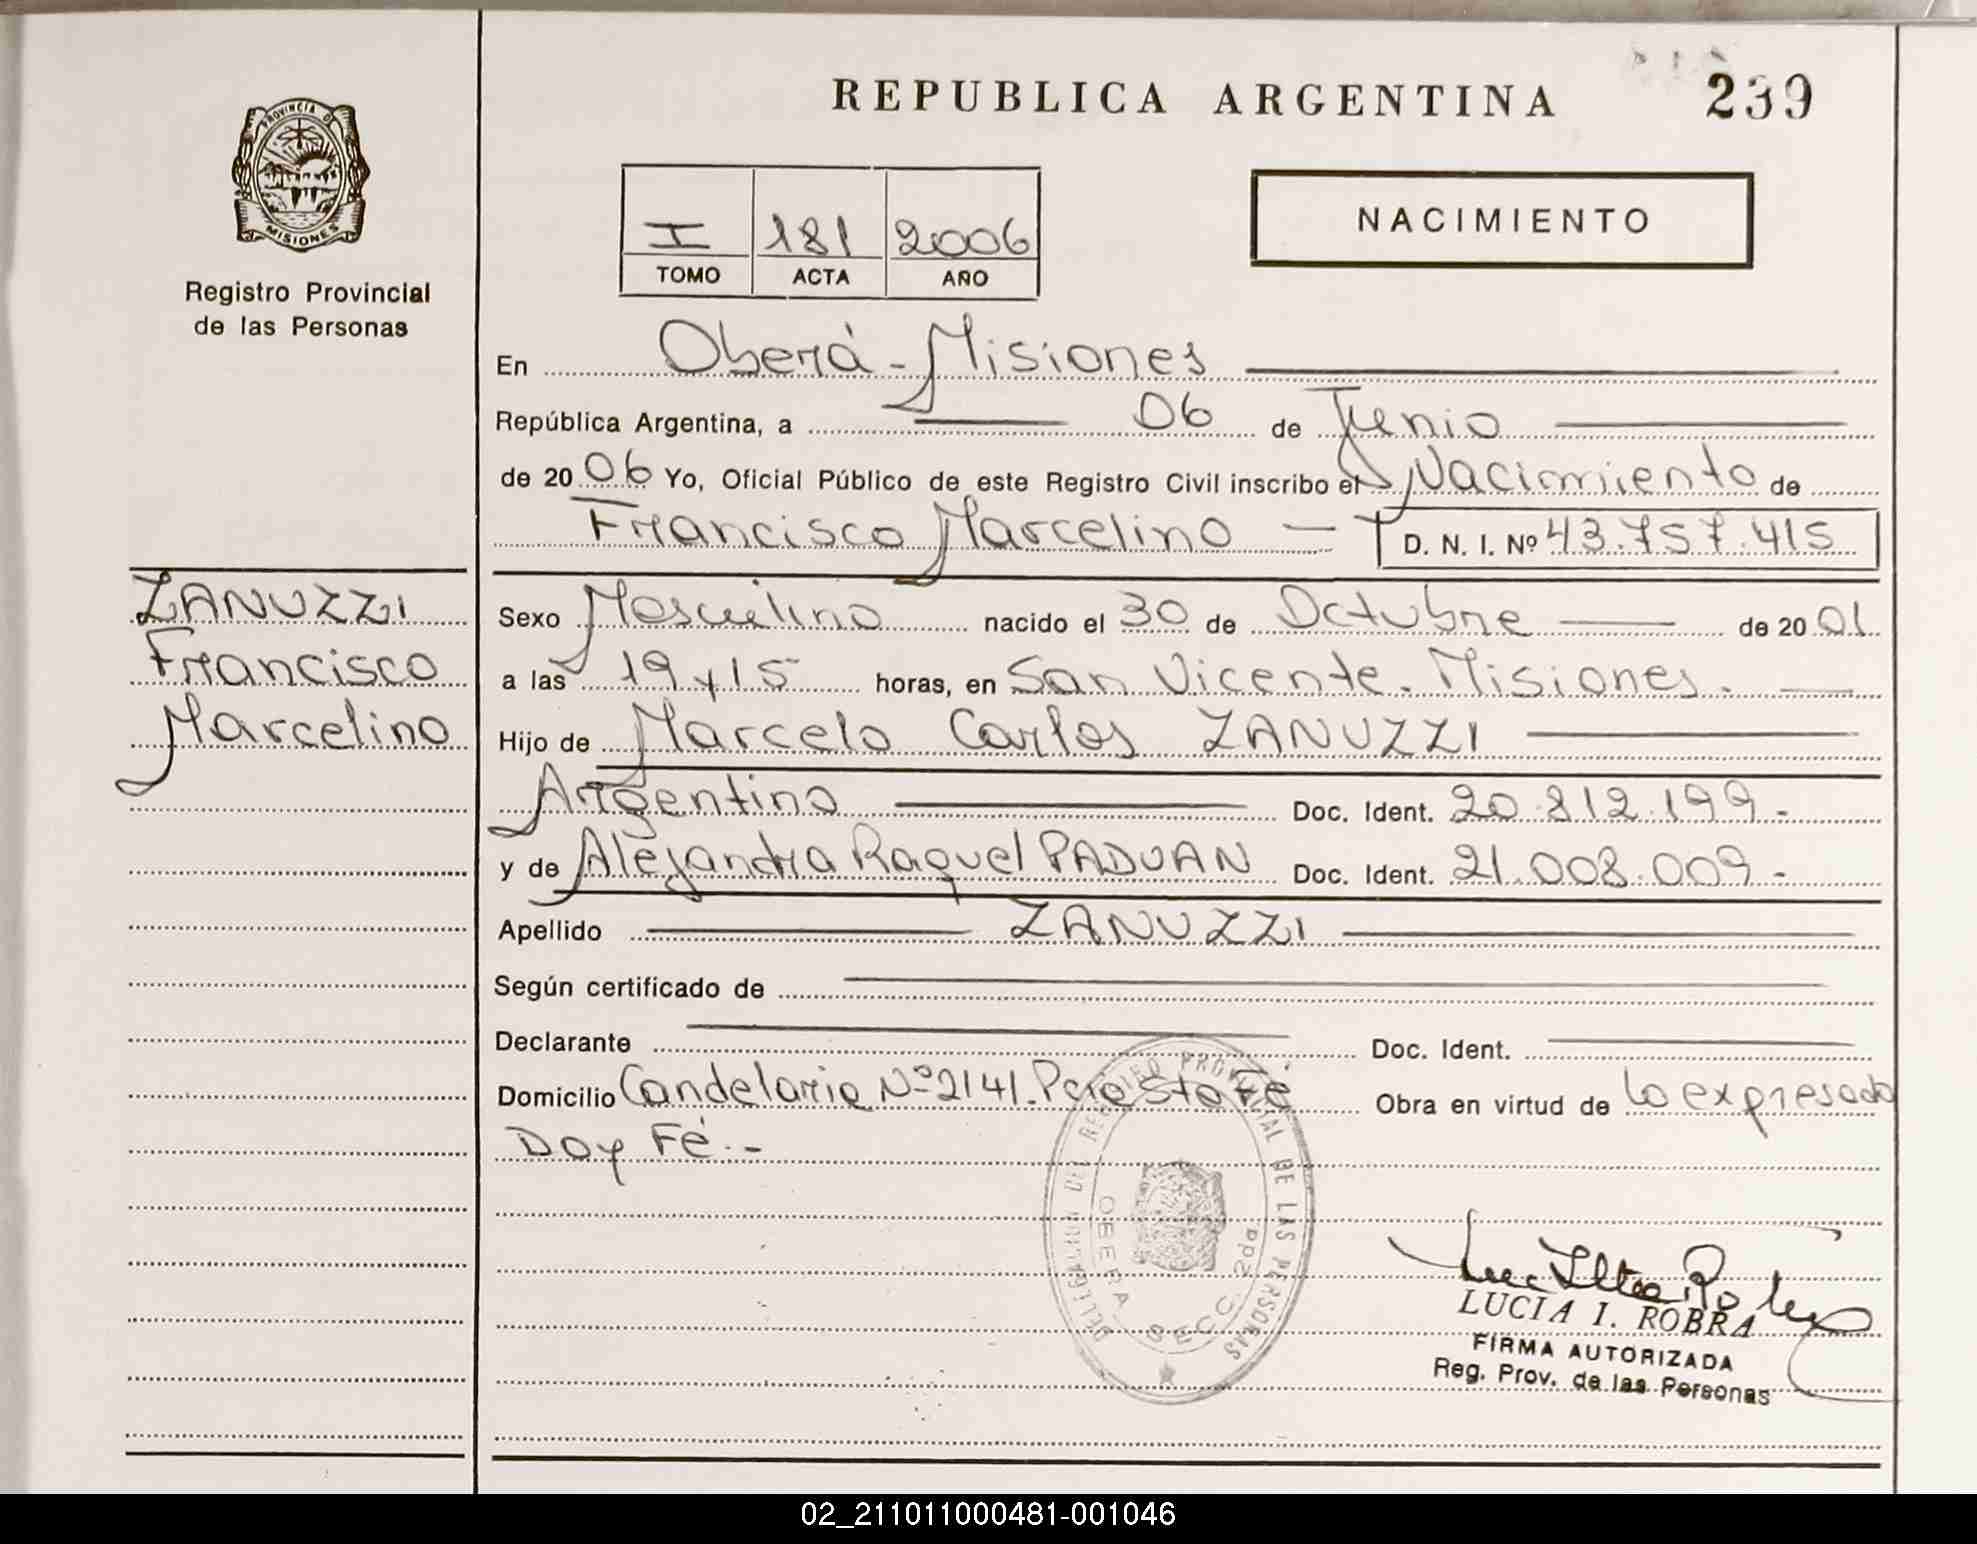 REPUBLICA ARGENTINA 239
PROVINCIA D
MISIONES
Registro Provincial
de las Personas
NACIMIENTO
I 181 2006
TOMO ACTA AÑO
En Oberá - Misiones
República Argentina, a 06 de Junio
de 2006 Yo, Oficial Público de este Registro Civil inscribo el Nacimiento de
Francisco Marcelino D. N. I. Nº 43.757.415
ZANUZZI
Francisco
Marcelino
Sexo Masculino nacido el 30 de Octubre de 2001
a las 19 y 15 horas, en San Vicente. Misiones.
Hijo de Marcelo Carlos ZANUZZI
Argentino Doc. Ident. 20.812.199.-
y de Alejandra Raquel PADUAN Doc. Ident. 21.008.009.-
Apellido ZANUZZI
Según certificado de
Declarante Doc. Ident.
Domicilio Candelaria Nº 2141. Pcia Sta Fé Obra en virtud de lo expresado
Doy Fé.-
DELEGACION DEL REGISTRO PROVINCIAL DE LAS PERSONAS
OBERA SECC. 2da.
LUCIA I. ROBRA
FIRMA AUTORIZADA
Reg. Prov. de las Personas
02_211011000481-001046